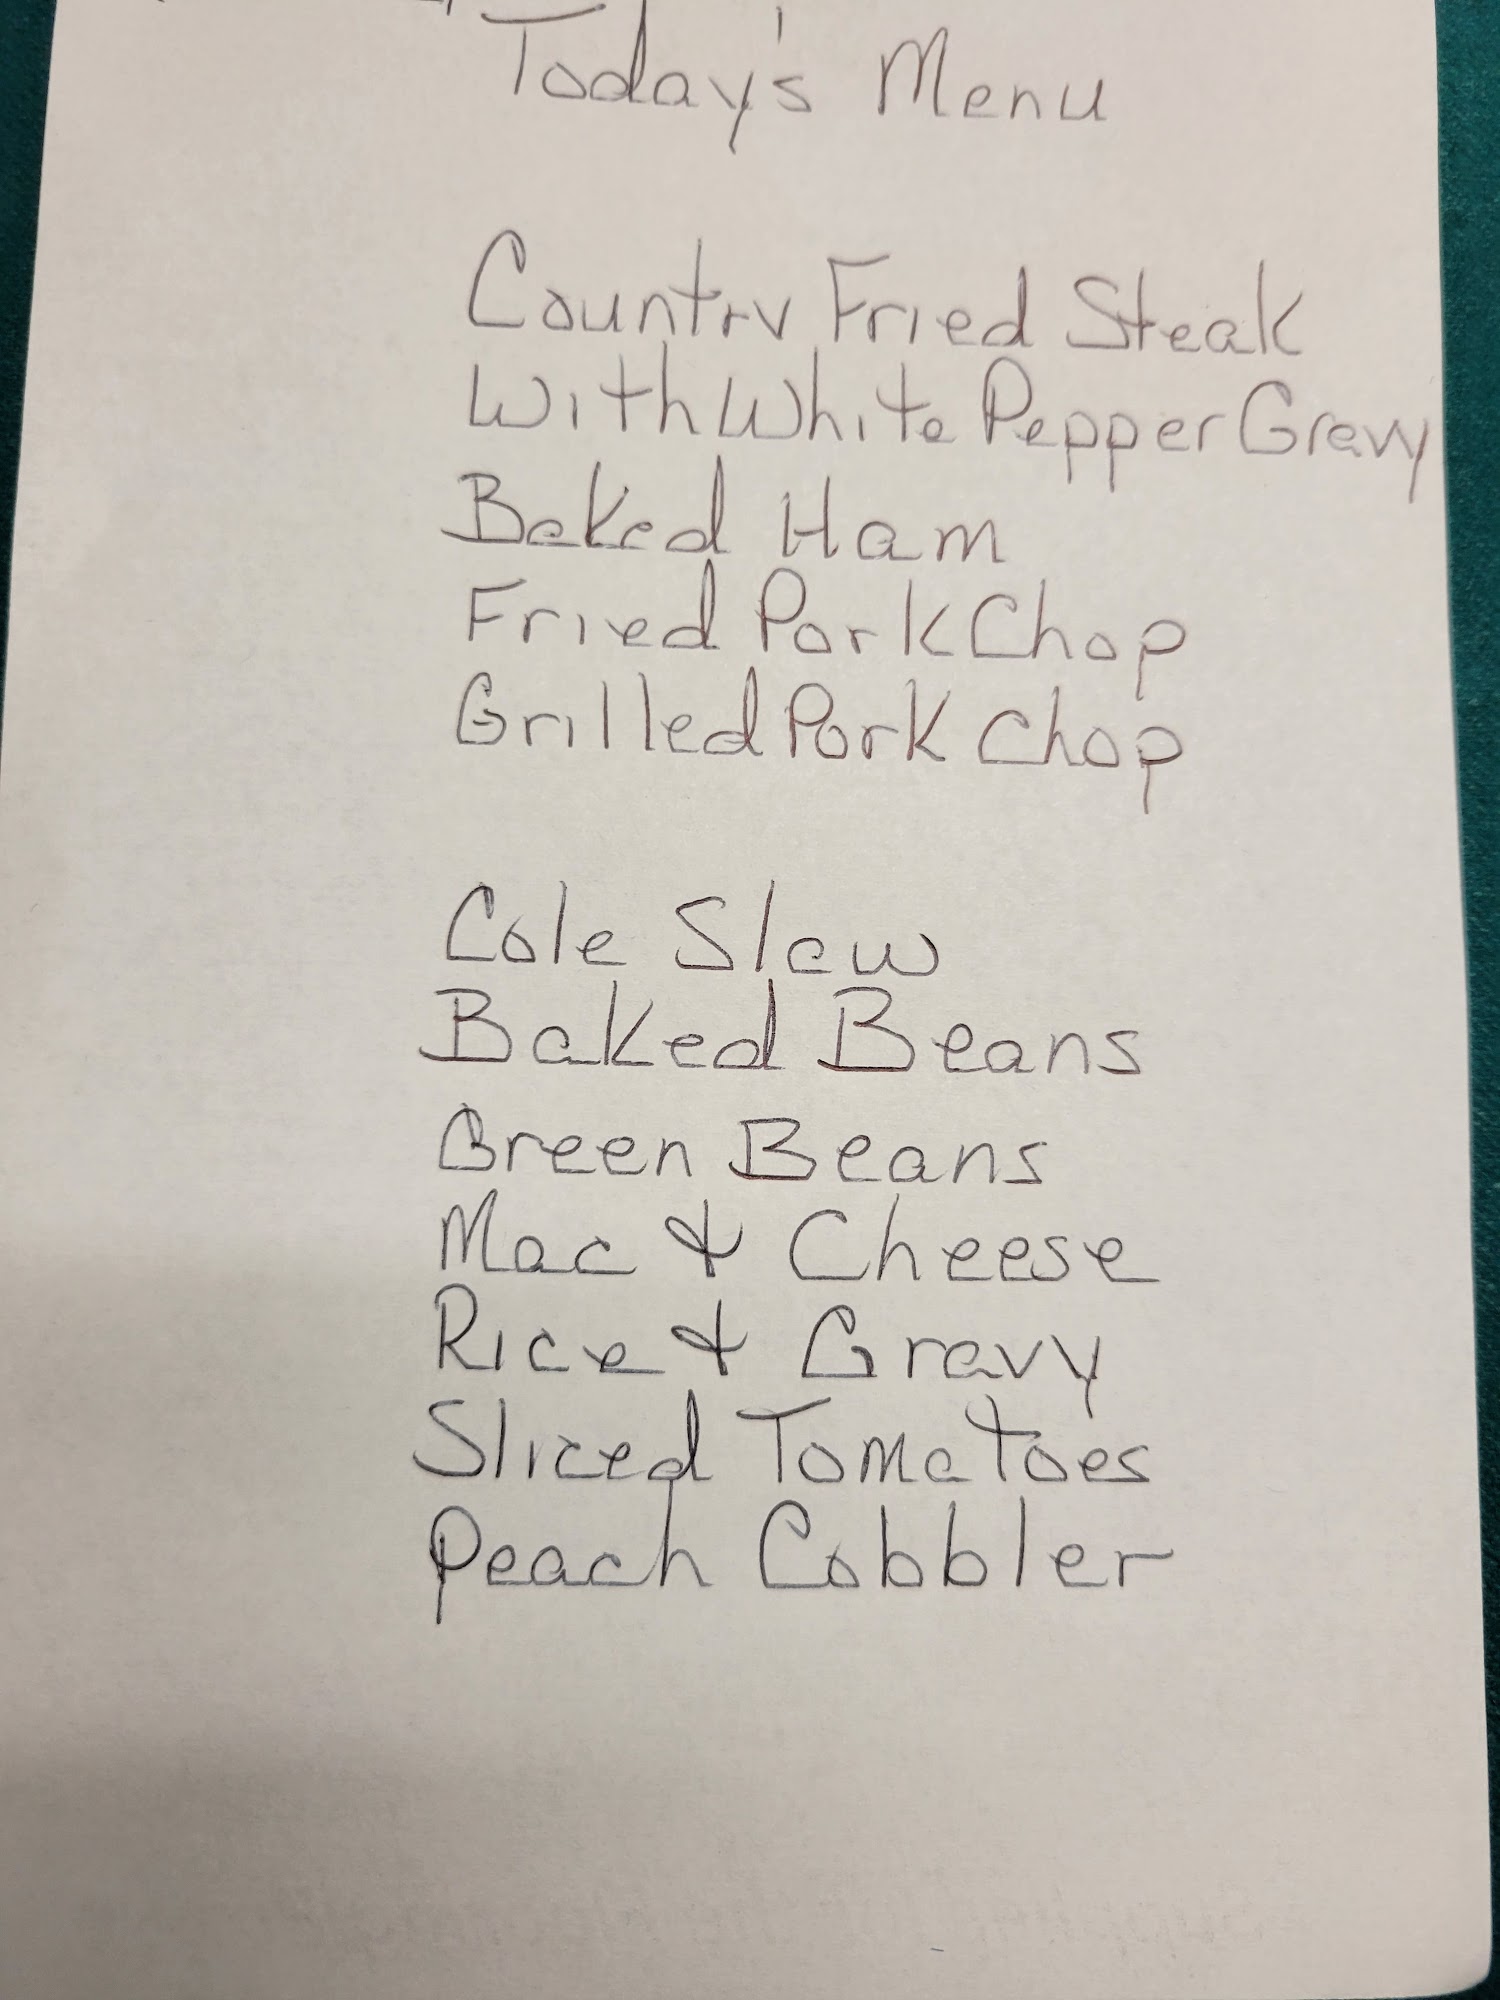 Today's Menu
Country Fried Steak
With White Pepper Gravy
Baked Ham
Fried Pork Chop
Grilled Pork Chop
Cole Slaw
Baked Beans
Green Beans
Mac & Cheese
Rice & Gravy
Sliced Tomatoes
Peach Cobbler